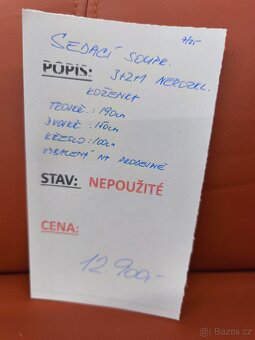 7/25
SEDACÍ SOUPR.
POPIS: 3+2M NEROZKL.
KOŽENKA
TROJKA: 190cm
DVOJKA: 150cm
KŘESLO: 100cm
VYBALENÁ NA PRODEJNĚ
STAV: NEPOUŽITÉ
CENA:
12.900,-
Bazos.cz